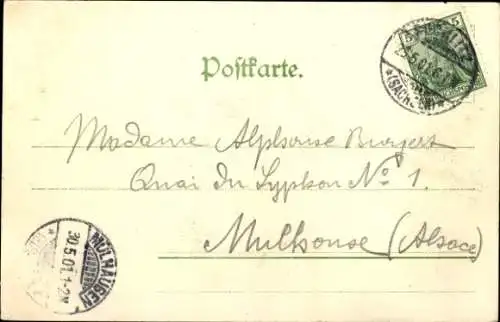 5
(SACHSEN)
Postkarte.
Madame Alphonse Burgert
Quai du Syphon No 1.
Mulhouse (Alsace)
MÜLHAUSEN
30.5.01.1-2N